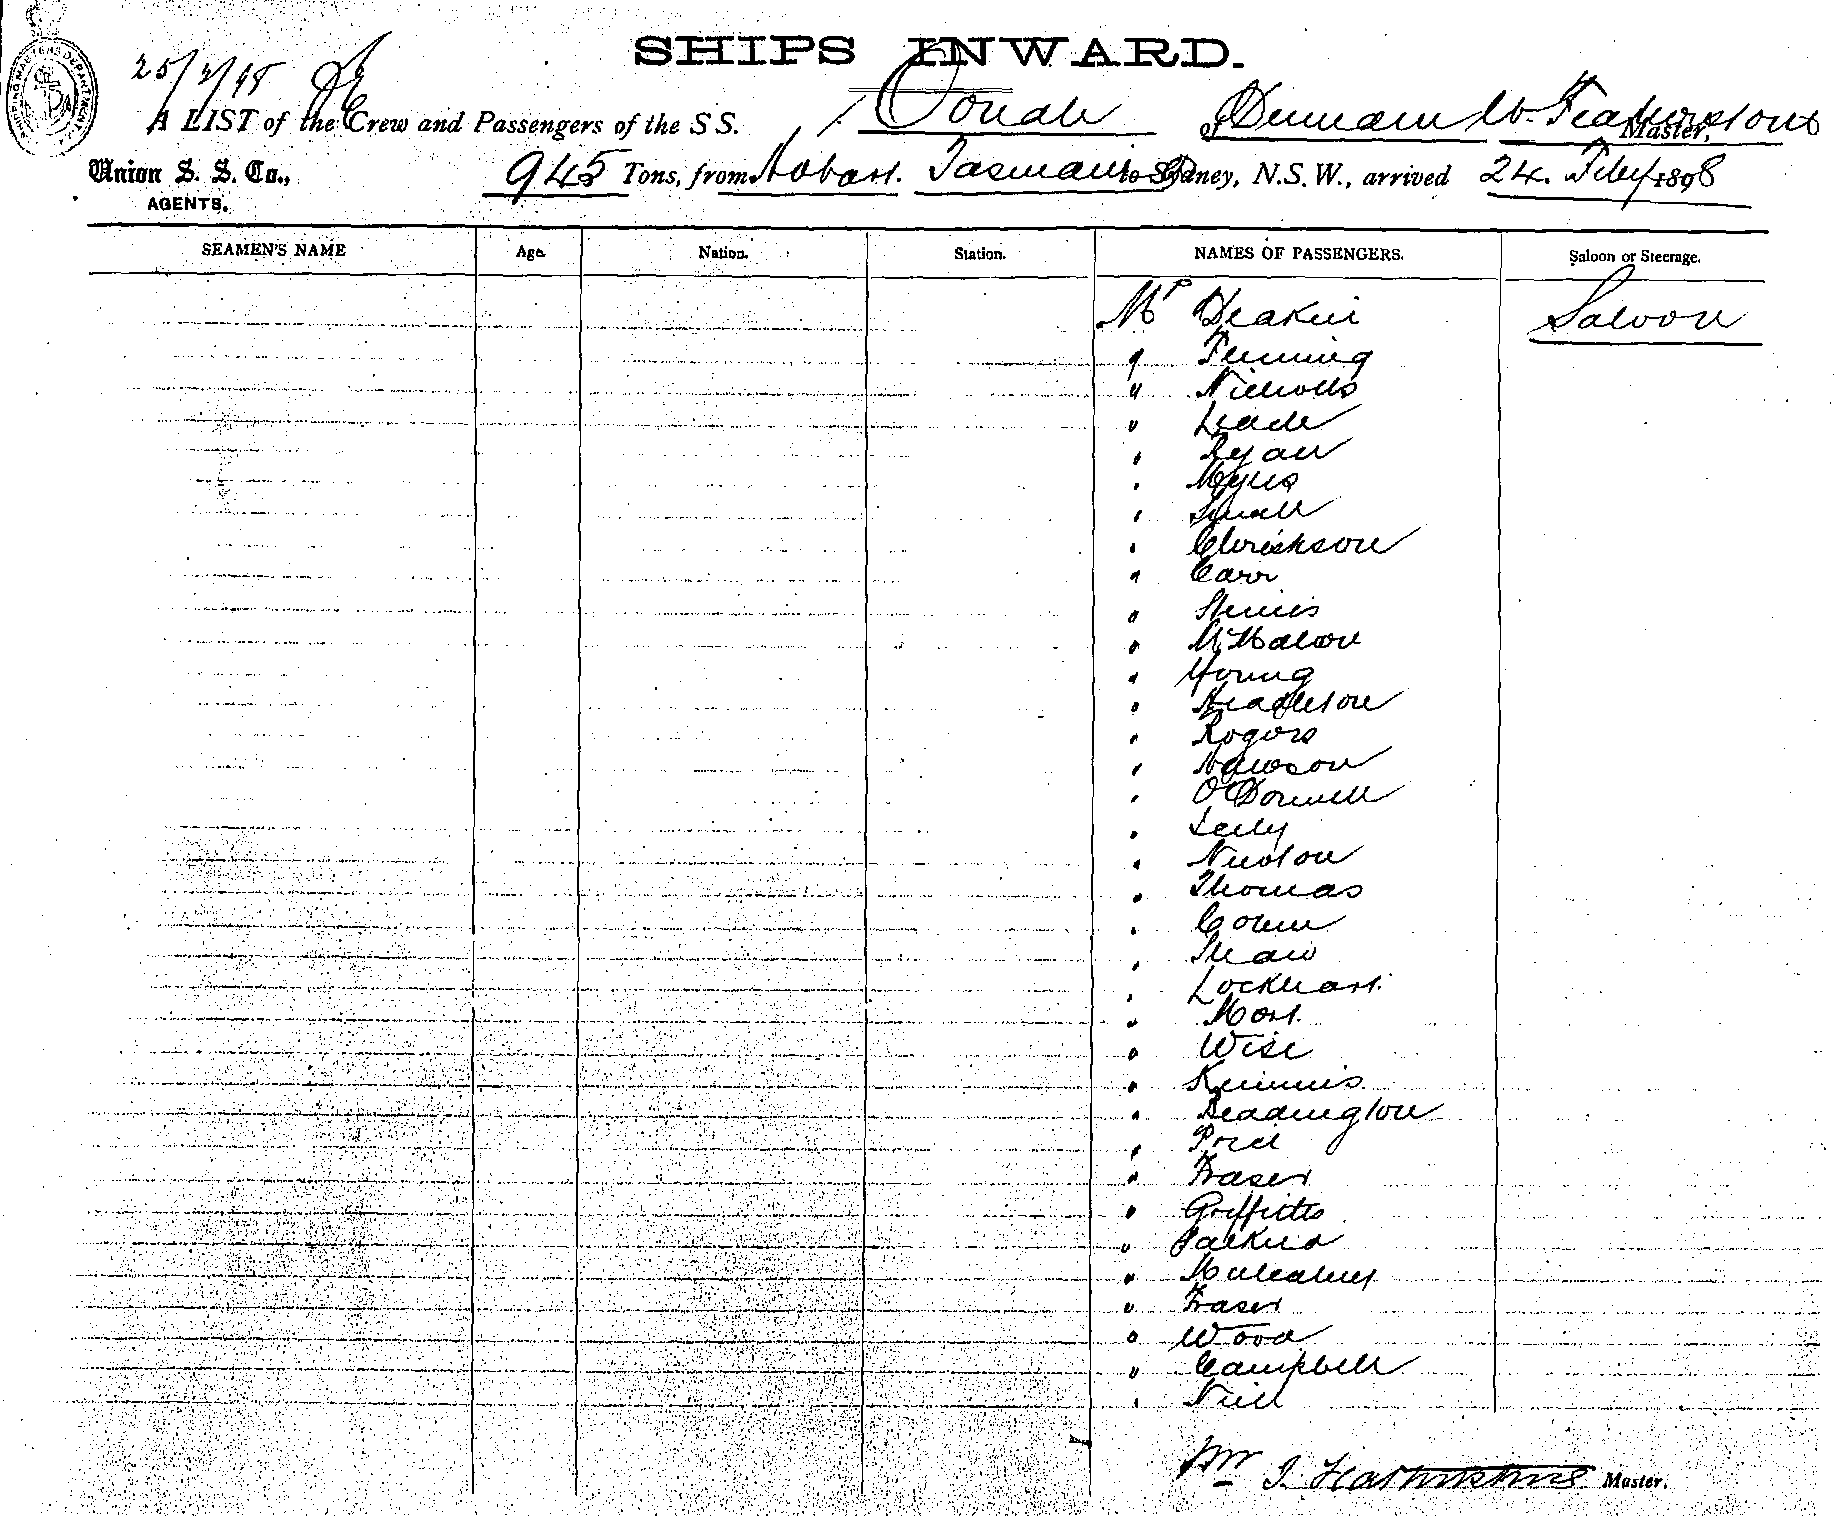 SHIPS INWARD.
25/2/98
A LIST of the Crew and Passengers of the S S. Oonah of Dunedin W. Featherstone Master,
Union S. S. Co., 945 Tons, from Hobart. Tasmania to Sydney, N.S.W., arrived 24. Feby 1898
AGENTS.
SEAMEN'S NAME Age. Nation. Station. NAMES OF PASSENGERS. Saloon or Steerage.
Mr Deakin Saloon
" Fleming
" Nicholls
" Leade
" Ryan
" Myers
" Small
" Chrickson
" Carr
" McMahon
" Young
" Rogers
" Hewson
" O'Donnell
" Newton
" Thomas
" Shaw
" Lockhart.
" Mort.
" Wise
" Beddington
" Fraser
" Griffiths
" Mulcahey
" Fraser
" Wood
" Campbell
" Neill
Wm J. Featherstone Master.